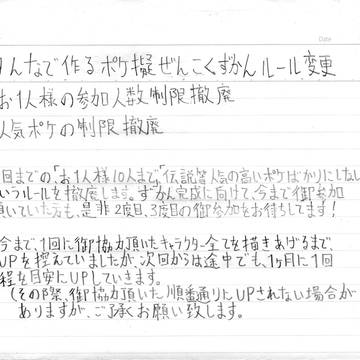 Date
んなで作るポケ擬ぜんこくずかんルール変更
お1人様の参加人数制限撤廃
人気ポケの制限撤廃
回までの「お1人様10人まで」「伝説等人気の高いポケばかりにしない
いうルールを撤廃します。ずかん完成に向けて、今まで御参加
頂いていた方も、是非2度目、3度目の御参加をお待ちしてます!
今まで、1回に御協力頂いたキャラクター全てを描きあげるまで、
UPを控えていましたが、次回からは途中でも、1ヶ月に1回
程を目安にUPしていきます。
(その際、御協力頂いた順番通りにUPされない場合が
ありますが、ご了承お願い致します。